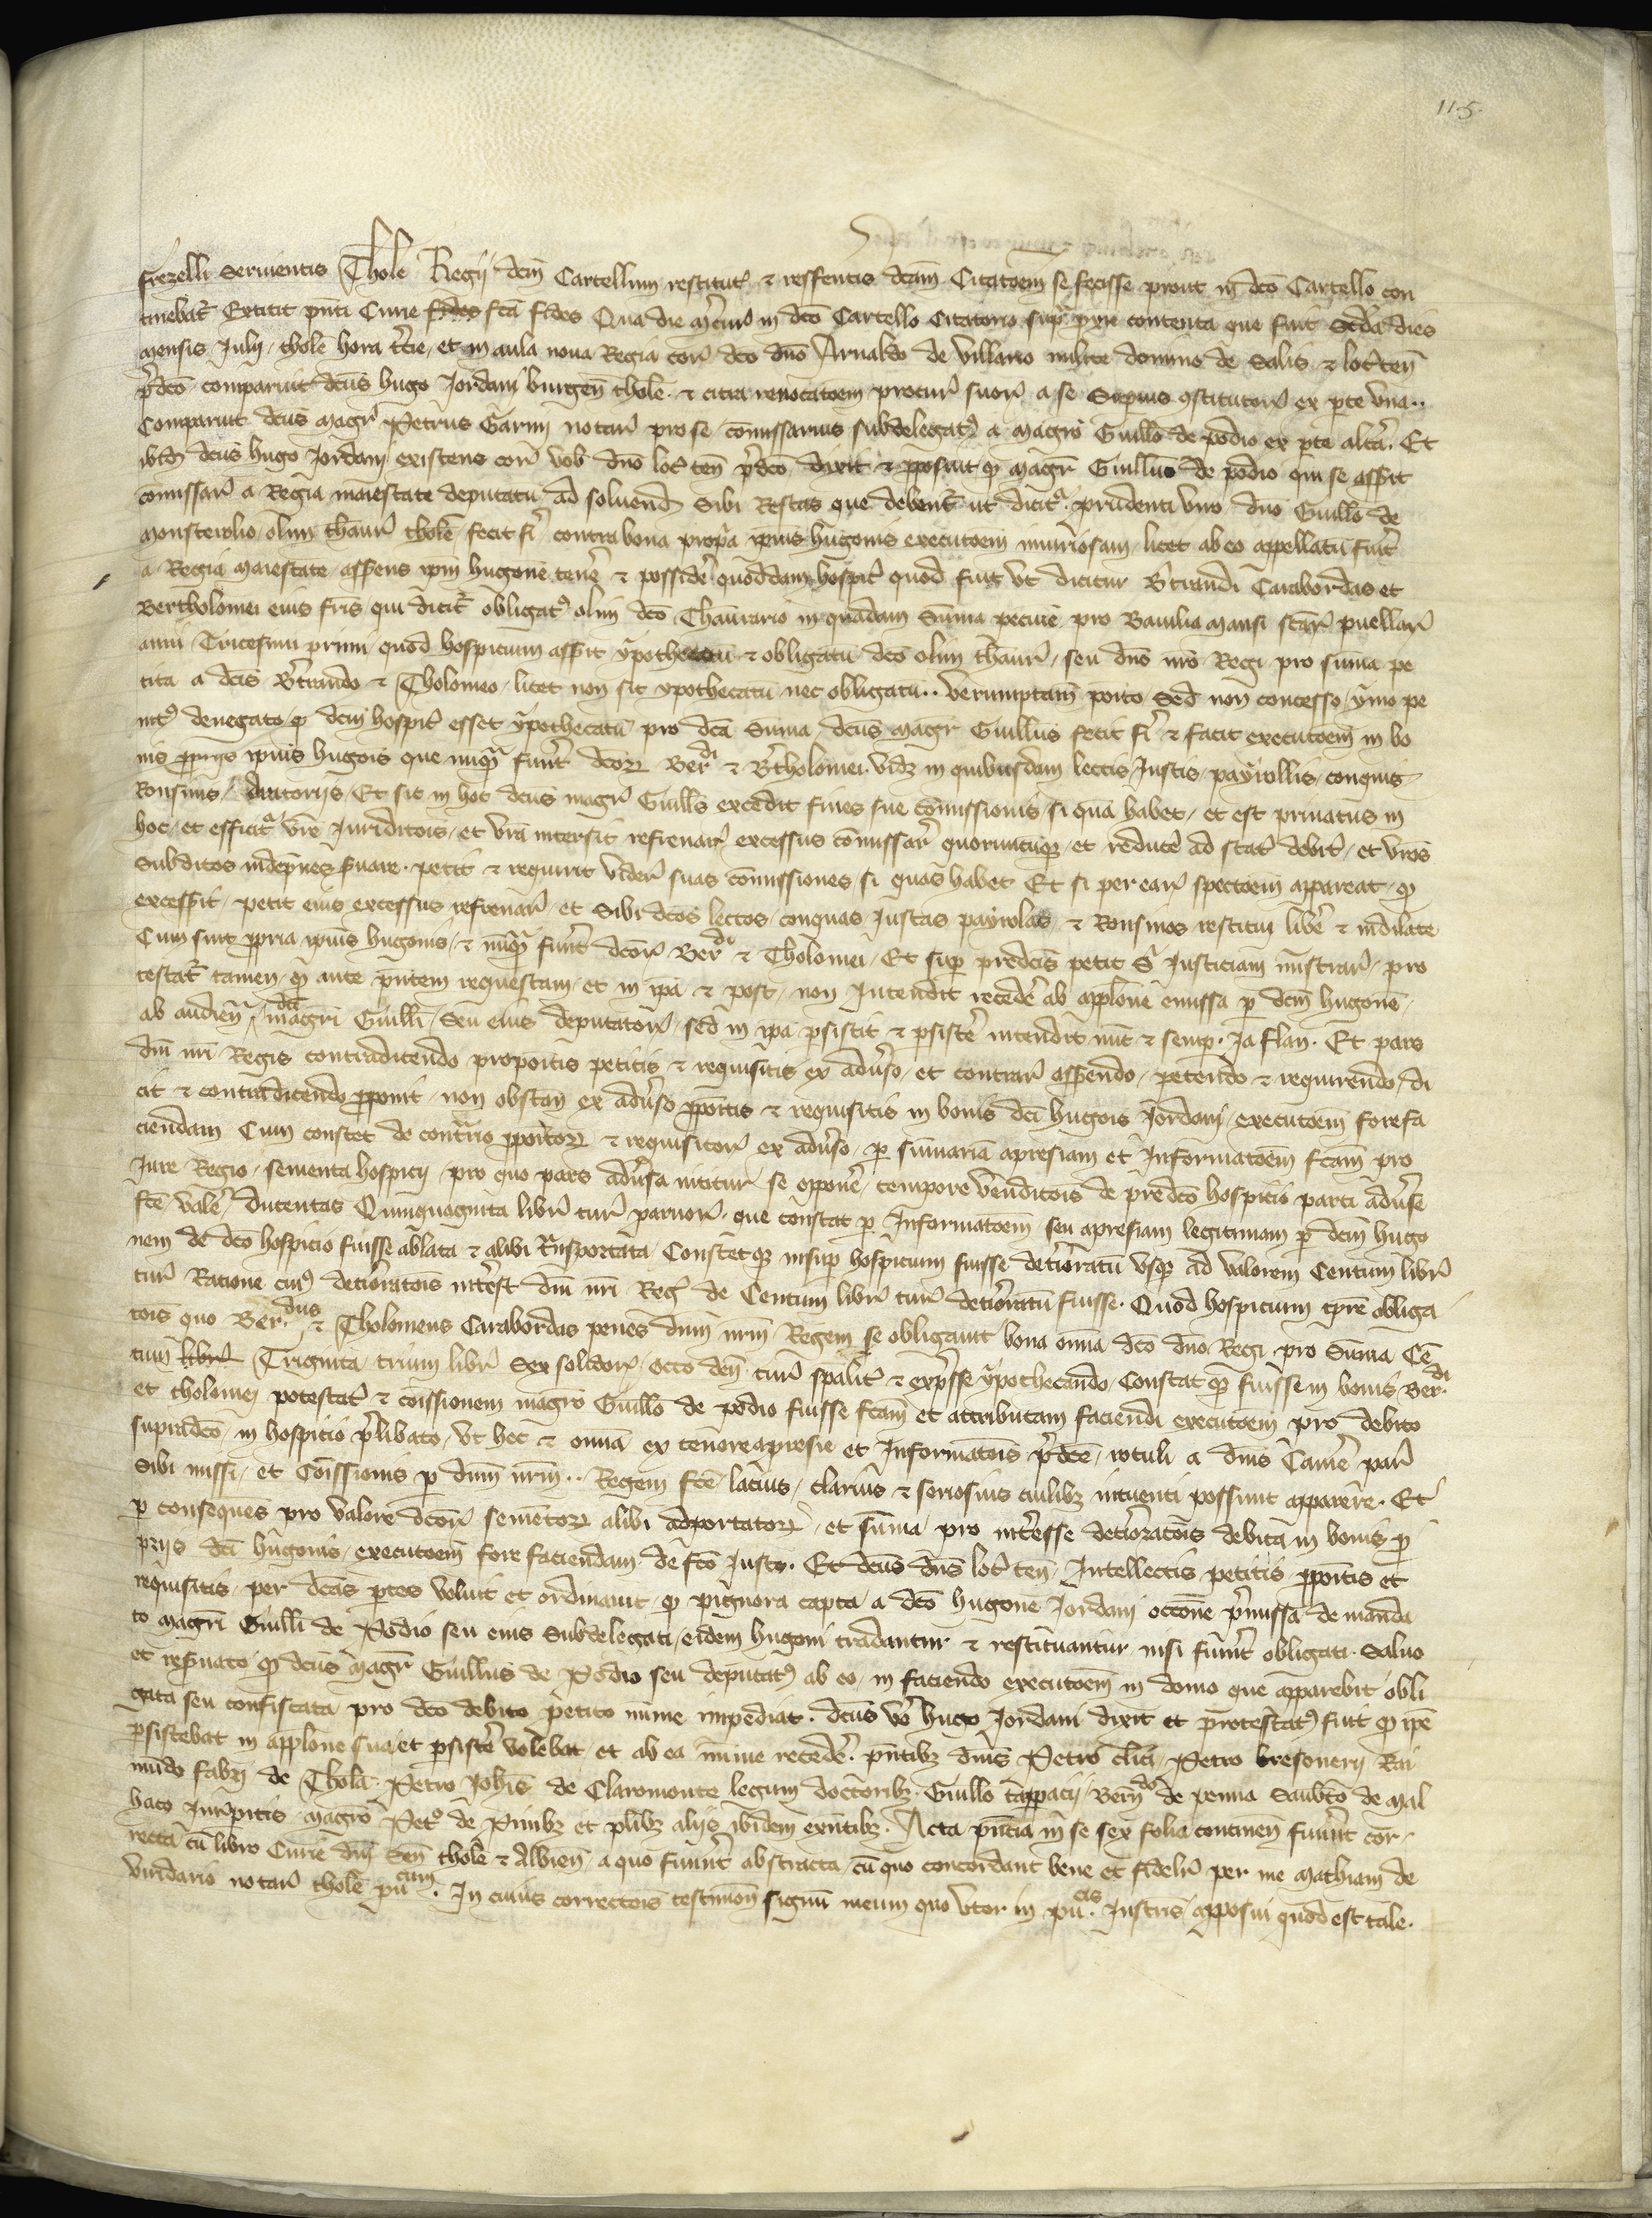 115.
frezelli servientis Thole Regii dcm Cartellum restitut̃ & refferentis dcam Citatoem se fecisse prout in dco Cartello con
tinebat̃ Extitit pñti Curie fca fides Qua die in dco Cartello Citatorio contenta que fuit Scda dies
mensis Julii thole hora tercie, et in aula nova Regia cor̃ dco dño Arnaldo de Villario milite domino de Salis & loc̃ teñ
p̃dco comparuit dcus hugo Jordani burgeñ thole & citra revocatoem procur̃ suor̃ a se Supius ɔstitutor̃ ex pte vna..
Comparuit dcus magr̃ Petrus Garini notar̃ pro se comissarius subdelegatꝰ a magro Guillo de podio ex pte alta. Et
ibid̃ dcus hugo Jordani existens cor̃ vob dño loc̃ teñ p̃dco dixit & pposuit ꝙ magr̃ Guillus de podio qui se asserit
comissar̃ a Regia maiestate deputatu ad solvend̃ Sibi Restas que debent̃ ut dicit̃ prudenti viro dño Guillo de
monsterolio olim thaur̃ thole fecit fi contra bona propa ipius hugonis executoem iniuriosam licet ab eo appellatu fuit
a Regia maiestate asserens ipm hugone tene & posside quoddam hospit̃ quod fuit vt dicitur Btrandi Carabordas et
Bertholomei eius fris qui dicit̃ obligatꝰ olim dco Thaurario in quadam Suma pecuie pro Baiulia mansi puellar̃
anni Tricesimi primi quod hospitium asserit ypothecatu & obligatu dco olim thaur̃ seu dño nro Regi pro suma pe
tita a dcis Btrando & Tholomeo licet non sit ypothecatu nec obligatu.. Verumptam posito Sed non concesso ymo pe
nitꝰ denegato ꝙ dcm hospit̃ esset ypothecatu pro dca Suma dcus magr̃ Guillus fecit fi & facit executoem in bo
nis ppriis ipius hugois que nuqua fuert dcor̃ Ber.di & Btholomei. vidz in quibusdam lectis Justis payrollis conquis
Ronsinis Et sic in hoc dcus magr̃ Guills excedit fines sue comissionis si qua habet et est privatus in
hoc et efficit̃ vre Juriditois et vra intersit refrenar̃ excessus comissar̃ quorumcuqz et reduce ad stat̃ debit̃ et vros
Subditos indepnes svare petit & requirit videri suas comissiones si quas habet Et si per ear̃ spectoem appareat ꝙ
excesserit petit eius excessus refrenar̃ et Sibi dcos lectos conquas Justas payrolas & Ronsinos restitui libe & indilate
Cum sint ppria ipius hugonis & nuqua fuert dcor̃ Ber.di & Tholomei Et sup predcis petit Sr̃ Justiciam mistrar̃ pro
testat̃ tamen ꝙ ante pñtem requestam et in ipa & post non Jntendit recede ab applone emissa p dcm hugone
ab audien dci magri Guilli Seu eius deputator̃ sed in ipa psistit & psiste intendit nuc & semp. Ja flam. Et pars
dñi nri Regis contradicendo propoitis petitis & requisitis ex adverso et contrar̃ asserendo petendo & requirendo di
cit & contradicendo pponit non obstañ ex adverso ppoitis & requisitis in bonis dci hugois Jordani executoem fore fa
ciendam Cum constet de contrario ppoitor̃ & requisitor̃ ex adverso p sumaria apresiam et Jnformatoem fcam pro
Jure Regio sementa hospicii pro quo pars adversa nititur se oppone tempore venditois de predco hospicio parti adverse
fce vale ducentas Quinquaginta libr̃ tur̃ parvor̃ que constat p Jnformatoem seu apresiam legitimam p dcm hugo
nem de dco hospicio fuisse ablata & alibi Transportata Constetqz insup hospicium fuisse detioratu vsqz ad valorem Centum libr̃
tur̃ Ratione cuiꝰ detioratois interest dñi nri Reg̃ de Centum libr̃ tur̃ detioratu fuisse. Quod hospicium tpre obliga
tois quo Ber.dus & Tholomeus Carabordas penes dñm nrm Regem se obligarunt bona omia dco dño Regi pro Suma Ce
tum libr̃ Triginta trium libr̃ Sex solidor̃ octo deñ tur̃ spalit̃ & expsse ypothecando Constat ꝙ fuisse in bonis Ber.di
et tholomei potestat̃ & comissionem magro Guillo de podio fuisse fcam et attributam faciendi executoem pro debito
supradco in hospicio plibato vt hec & omia ex tenore apresie et Jnformatois pdce rotuli a dñis Camere par̃
Sibi missi et Comissionis p dñm nrm.. Regem fce lacius clarius & seriosius cuilibz intuenti possunt apparere. Et
p consequens pro valore dcor̃ sementor̃ alibi adportator̃ et suma pro interesse detioratois debita in bonis p
priis dci hugonis executoem fore faciendam de fco Justo. Et dcus dñs loc̃ teñ Jntellectis petitis ppoitis et
requisitis per dcas ptes voluit et ordinavit ꝙ pignora capta a dco hugone Jordani occone pmissa de manda
to magri Guilli de Podio seu eius Subdelegati eidem hugoni tradantur & restituantur nisi fuert obligati. Salvo
et reservato ꝙ dcus magr̃ Guillus de Podio seu deputatꝰ ab eo in faciendo executoem in domo que apparebit obli
gata seu confiscata pro dco debito petito nime impediat. dcus vo hugo Jordani dixit et protestatꝰ fuit ꝙ ipe
psistebat in applone sua et psiste volebat et ab ea nime recede. pñtibz dñis Petro clici Petro bresonerii Rai
mudo fabri de Thola Petro Johis de Claromonte legum doctoribz. Guillo tappacii Berñdo de penna Saubto de Mal
haco Jurispitis magro Petꝰ de Pinibz et plibz aliis ibidem exñtibz. Acta pñtia in se sex folia contineñ fuert cor
recta cu libro Curie dñi Señ thole & Albieñ a quo fuert abstracta cu quo concordant bene et fidelit̃ per me Mathiam de
viridario notar̃ thole pu.cum. In cuius correctois testimoñ signu meum quo vtor in pu.cis Justris apposui quod est tale.